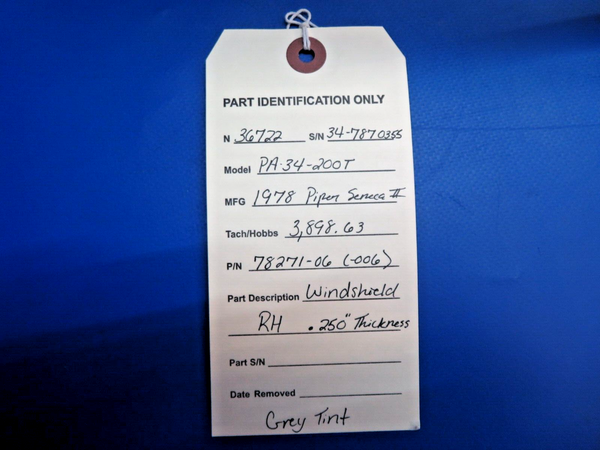 PART IDENTIFICATION ONLY
N 36722 S/N 34-7870355
Model PA-34-200T
MFG 1978 Piper Seneca II
Tach/Hobbs 3,898.63
P/N 78271-06 (-006)
Part Description Windshield
RH .250" Thickness
Part S/N
Date Removed
Grey Tint